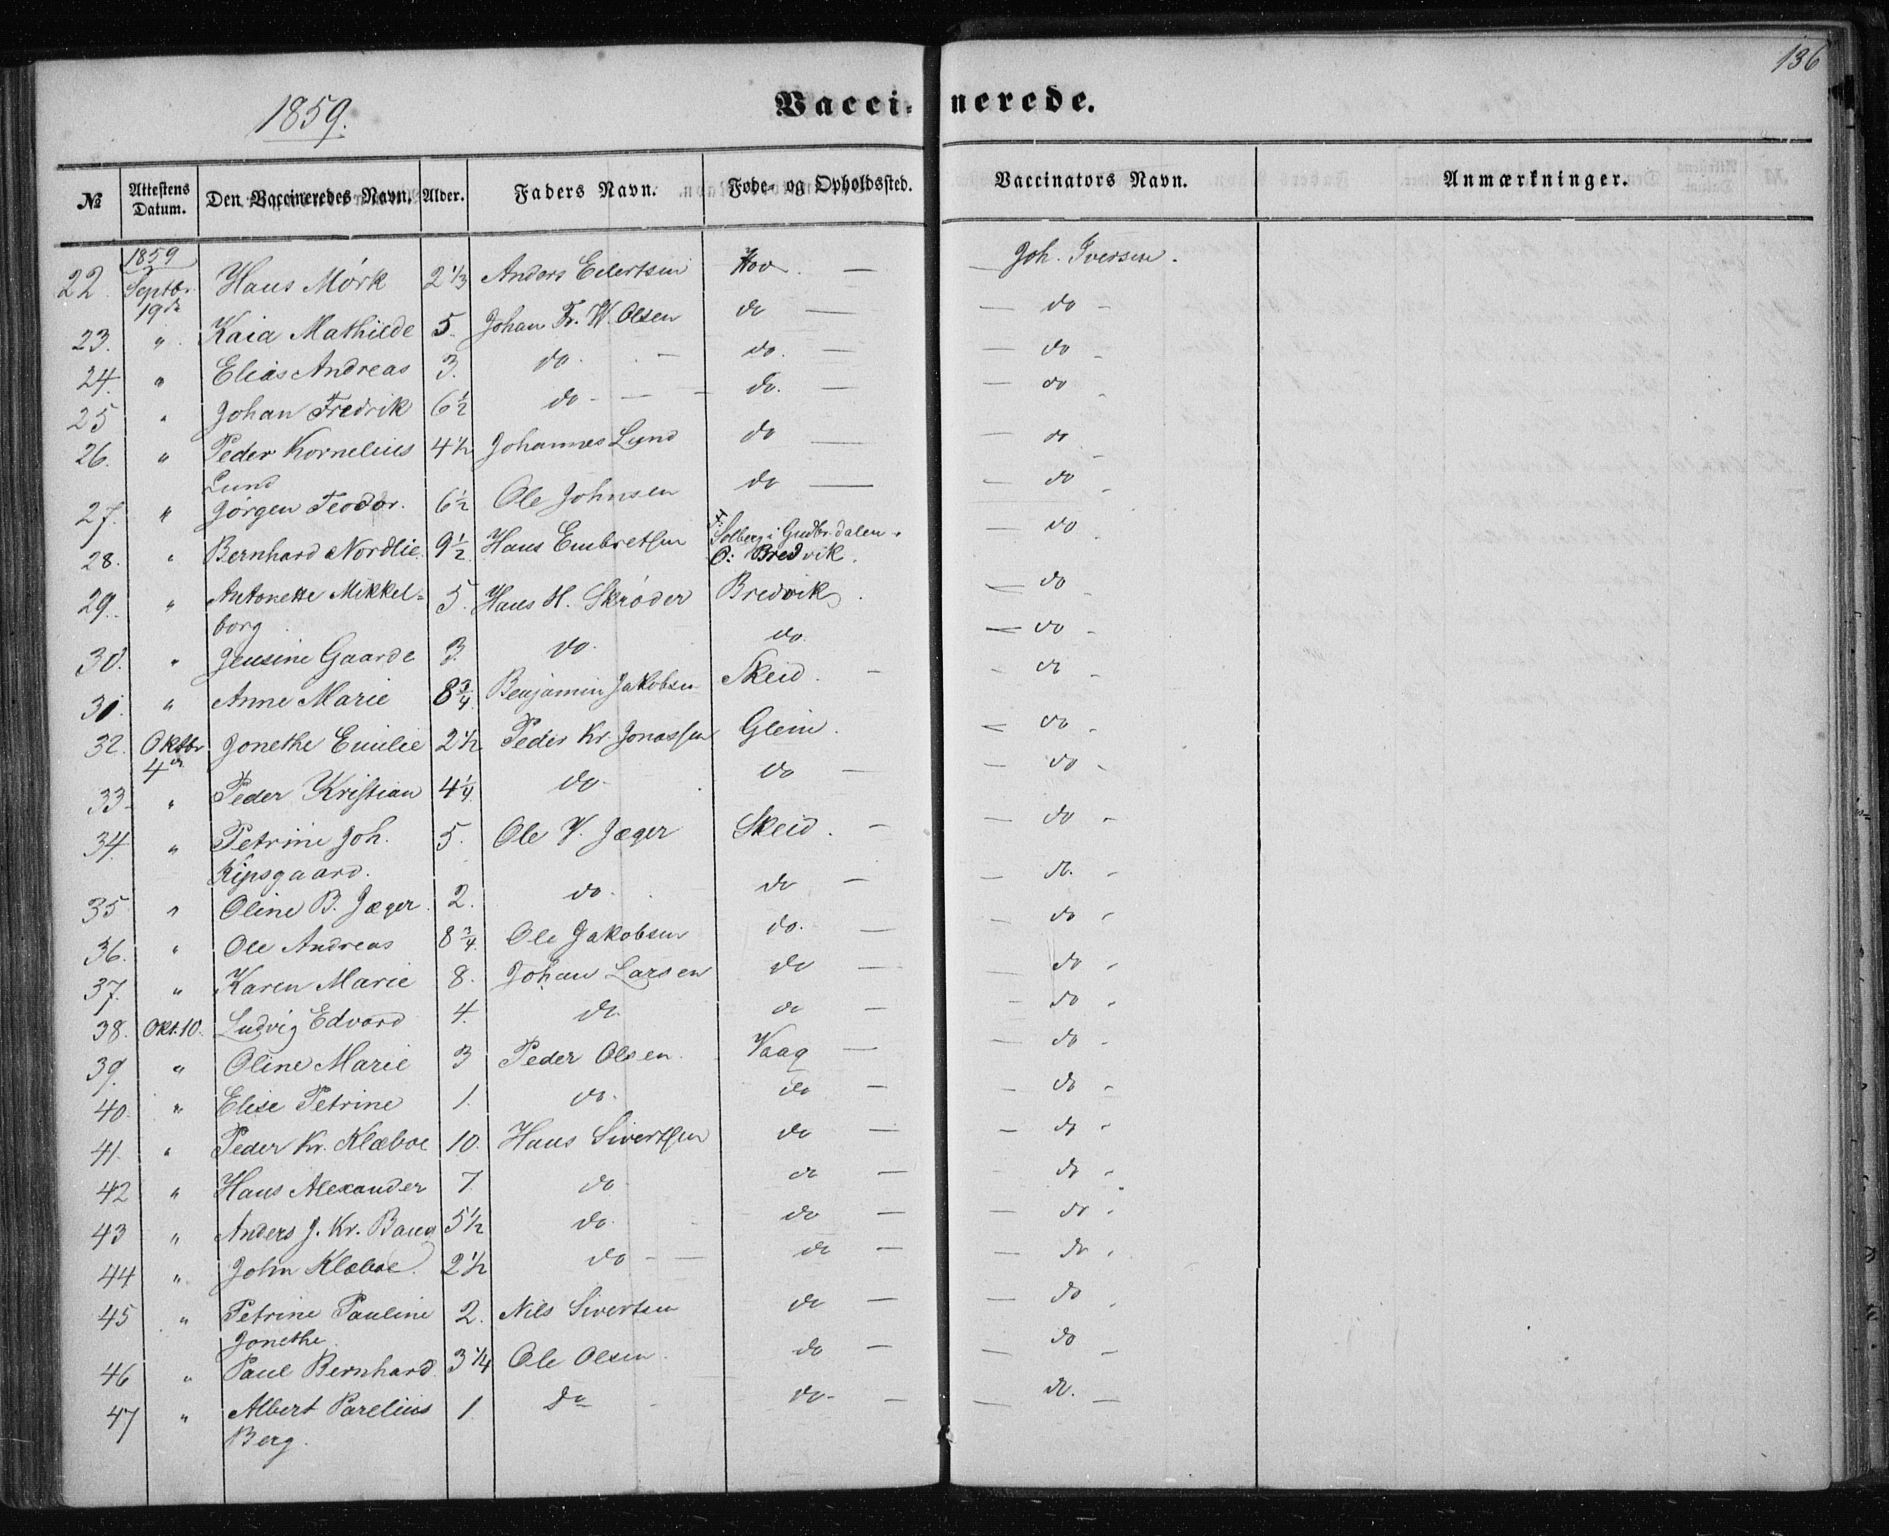 136
1859.
Vacci- nerede.
№ Attestens Datum. Den Vaccineredes Navn. Alder. Faders Navn. Føde- og Opholdssted. Vaccinators Navn. Anmærkninger.
22. 1859 Septbr. 19de Hans Mørk 2 1/3 Anders Eilertsen Hov. — Joh. Iversen.
23. " Kaia Mathilde 5. Johan Fr. W. Olsen do — — do —
24. " Elias Andreas 3. do. — do. — — do -
25 " Johan Fredrik 6 1/2 do - — do. — — do -
26. " Peder Kornelius 4 1/2 Johannes Lund do — — do -
Lund
27. " Jørgen Teodor. 6 1/2 Ole Johnsen do — — do -
28. " Bernhard Nordlie. 9 1/2 Hans Embretsen F: Solberg i Gudbr.dalen. — do -
O: Bredvik.
29. " Antonette Mikkel= 5. Hans H. Skrøder Bredvik. — do -
borg.
30. " Jensine Gaarde 3. do. do. — do -
31. " Anne Marie 8 3/4 Benjamin Jakobsen Skeid. - - do -
32. Oktbr 4de Jonethe Emilie 2 1/2 Peder Kr. Jonassen Glein. — do -
33. " Peder Kristian 4 1/4 do- do — — do -
34. " Petrine Joh. 5. Ole V. Jæger Skeid. — — do -
Ripsgaard.
35 " Oline B. Jæger. 2. do. do — — do. -
36. " Ole Andreas 8 3/4 Ole Jakobsen do. — — do -
37. " Karen Marie 8. Johan Larsen do — — do -
38. Okt. 10. Ludvig Edvard 4. do. do — - do -
39. " Oline Marie 3 Peder Olsen. Vaag — — do -
40. " Elise Petrine 1. do. do — — do -
41. " Peder Kr. Klæboe 10. Hans Sivertsen do — — do -
42 " Hans Alexander 7. do do — — do -
43 " Anders J. Kr. Baug 5 1/2 do. do — — do -
44 " John Klæboe. 2 1/2 do — — do — — do -
45 " Petrine Pauline 2. Nils Sivertsen do — — do -
Jonethe
46 " Paul Bernhard. 3 1/4 Ole Olsen. do — — do —
47 " Albert Parelius 1. do do- — — do. —
Berg.